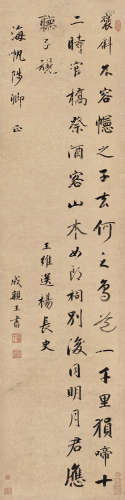 褒斜不容幰之子去何之鳥道一千里猨啼十
二時官橋祭酒客山木女郎祠別後同明月君應
聽子規
王維送楊長史
海帆 正
成親王書